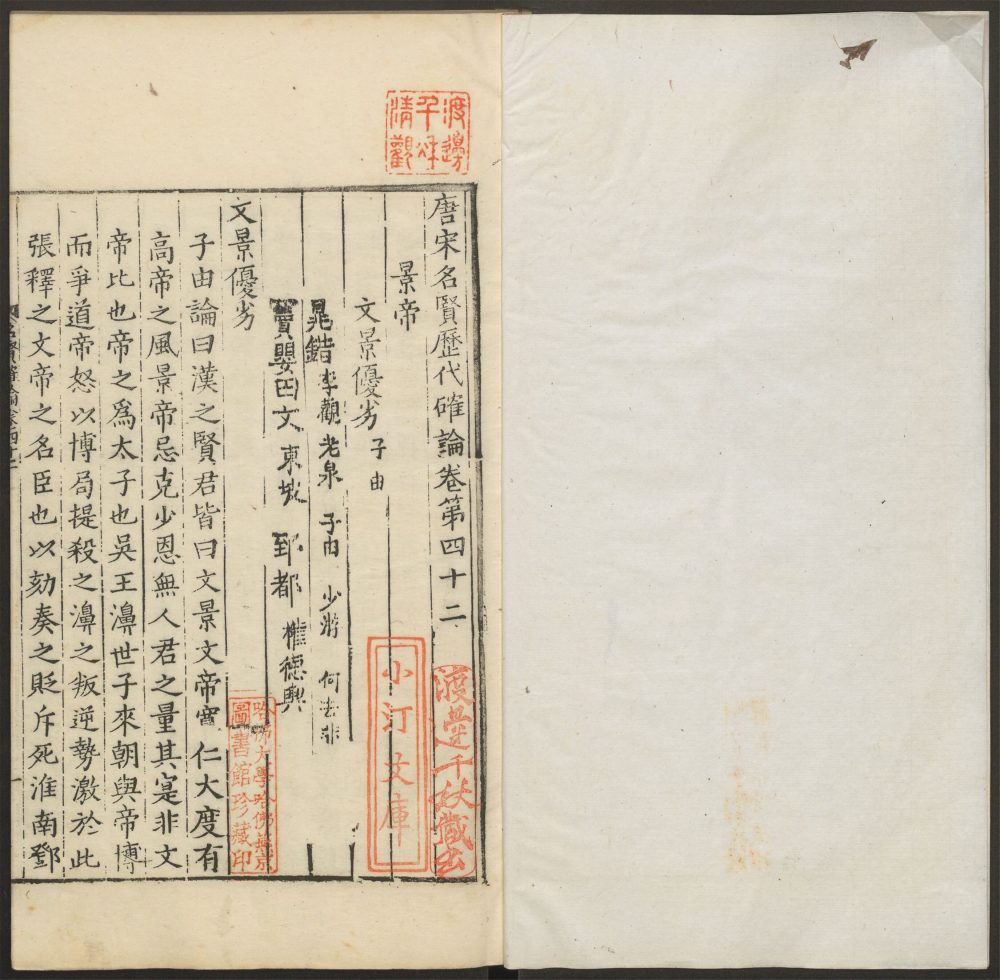 唐宋名賢歷代確論卷第四十二
景帝
文景優劣 子由
晁錯 李觀 老泉 子由 少游 何去非
竇嬰田文 東坡 郅都 權德輿
文景優劣
子由論曰漢之賢君皆曰文景文帝寬仁大度有
高帝之風景帝忌克少恩無人君之量其寔非文
帝比也帝之為太子也吳王濞世子來朝與帝博
而爭道帝怒以博局提殺之濞之叛逆勢激於此
張釋之文帝之名臣也以劾奏之貶斥死淮南鄧
渡邊千秋清觀
渡邊千秋藏書
小汀文庫
哈佛大學哈佛燕京圖書館珍藏印